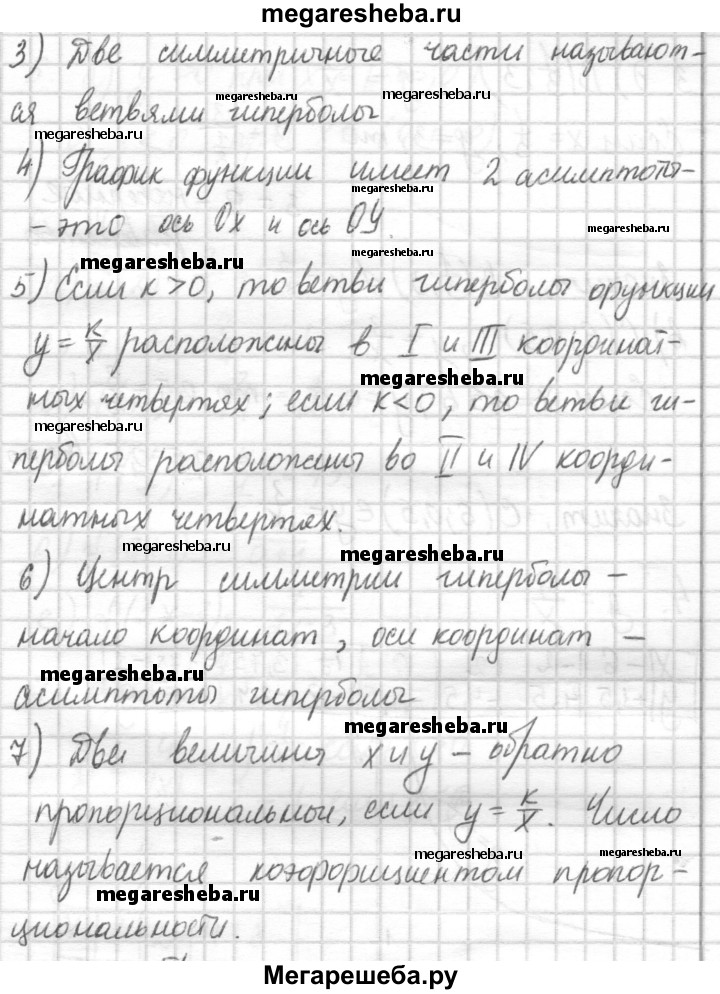 megaresheba.ru
3) Две симметричные части называют-
ся ветвями гиперболы
megaresheba.ru
megaresheba.ru
megaresheba.ru
4) График функции имеет 2 асимптоты-
megaresheba.ru
- это ось Ox и ось OY.
megaresheba.ru
megaresheba.ru
5) Если к>0, то ветви гиперболы функции
y = к/x расположены в I и III координат-
megaresheba.ru
ных четвертях; если к<0, то ветви ги-
megaresheba.ru
перболы расположены во II и IV коорди-
натных четвертях.
megaresheba.ru
megaresheba.ru
6) Центр симметрии гиперболы -
начало координат, оси координат —
megaresheba.ru
асимптоты гиперболы
megaresheba.ru
7) Две величины x и y - обратно
пропорциональны, если y = к/x. Число
megaresheba.ru
megaresheba.ru
называется коэффициентом пропор-
megaresheba.ru
циональности.
Мегарешеба.ру